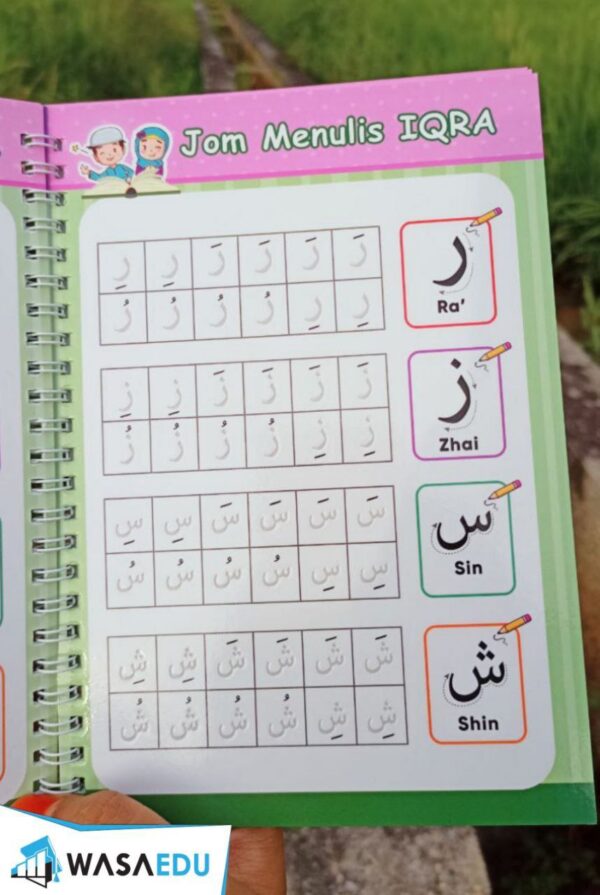 Jom Menulis IQRA
ر
Ra’
رَ رَ رَ رَ رِ رِ
رِ رِ رُ رُ رُ رُ
ز
Zhai
زَ زَ زَ زَ زِ زِ
زِ زِ زُ زُ زُ زُ
س
Sin
سَ سَ سَ سَ سِ سِ
سِ سِ سُ سُ سُ سُ
ش
Shin
شَ شَ شَ شَ شِ شِ
شِ شِ شُ شُ شُ شُ
WASAEDU